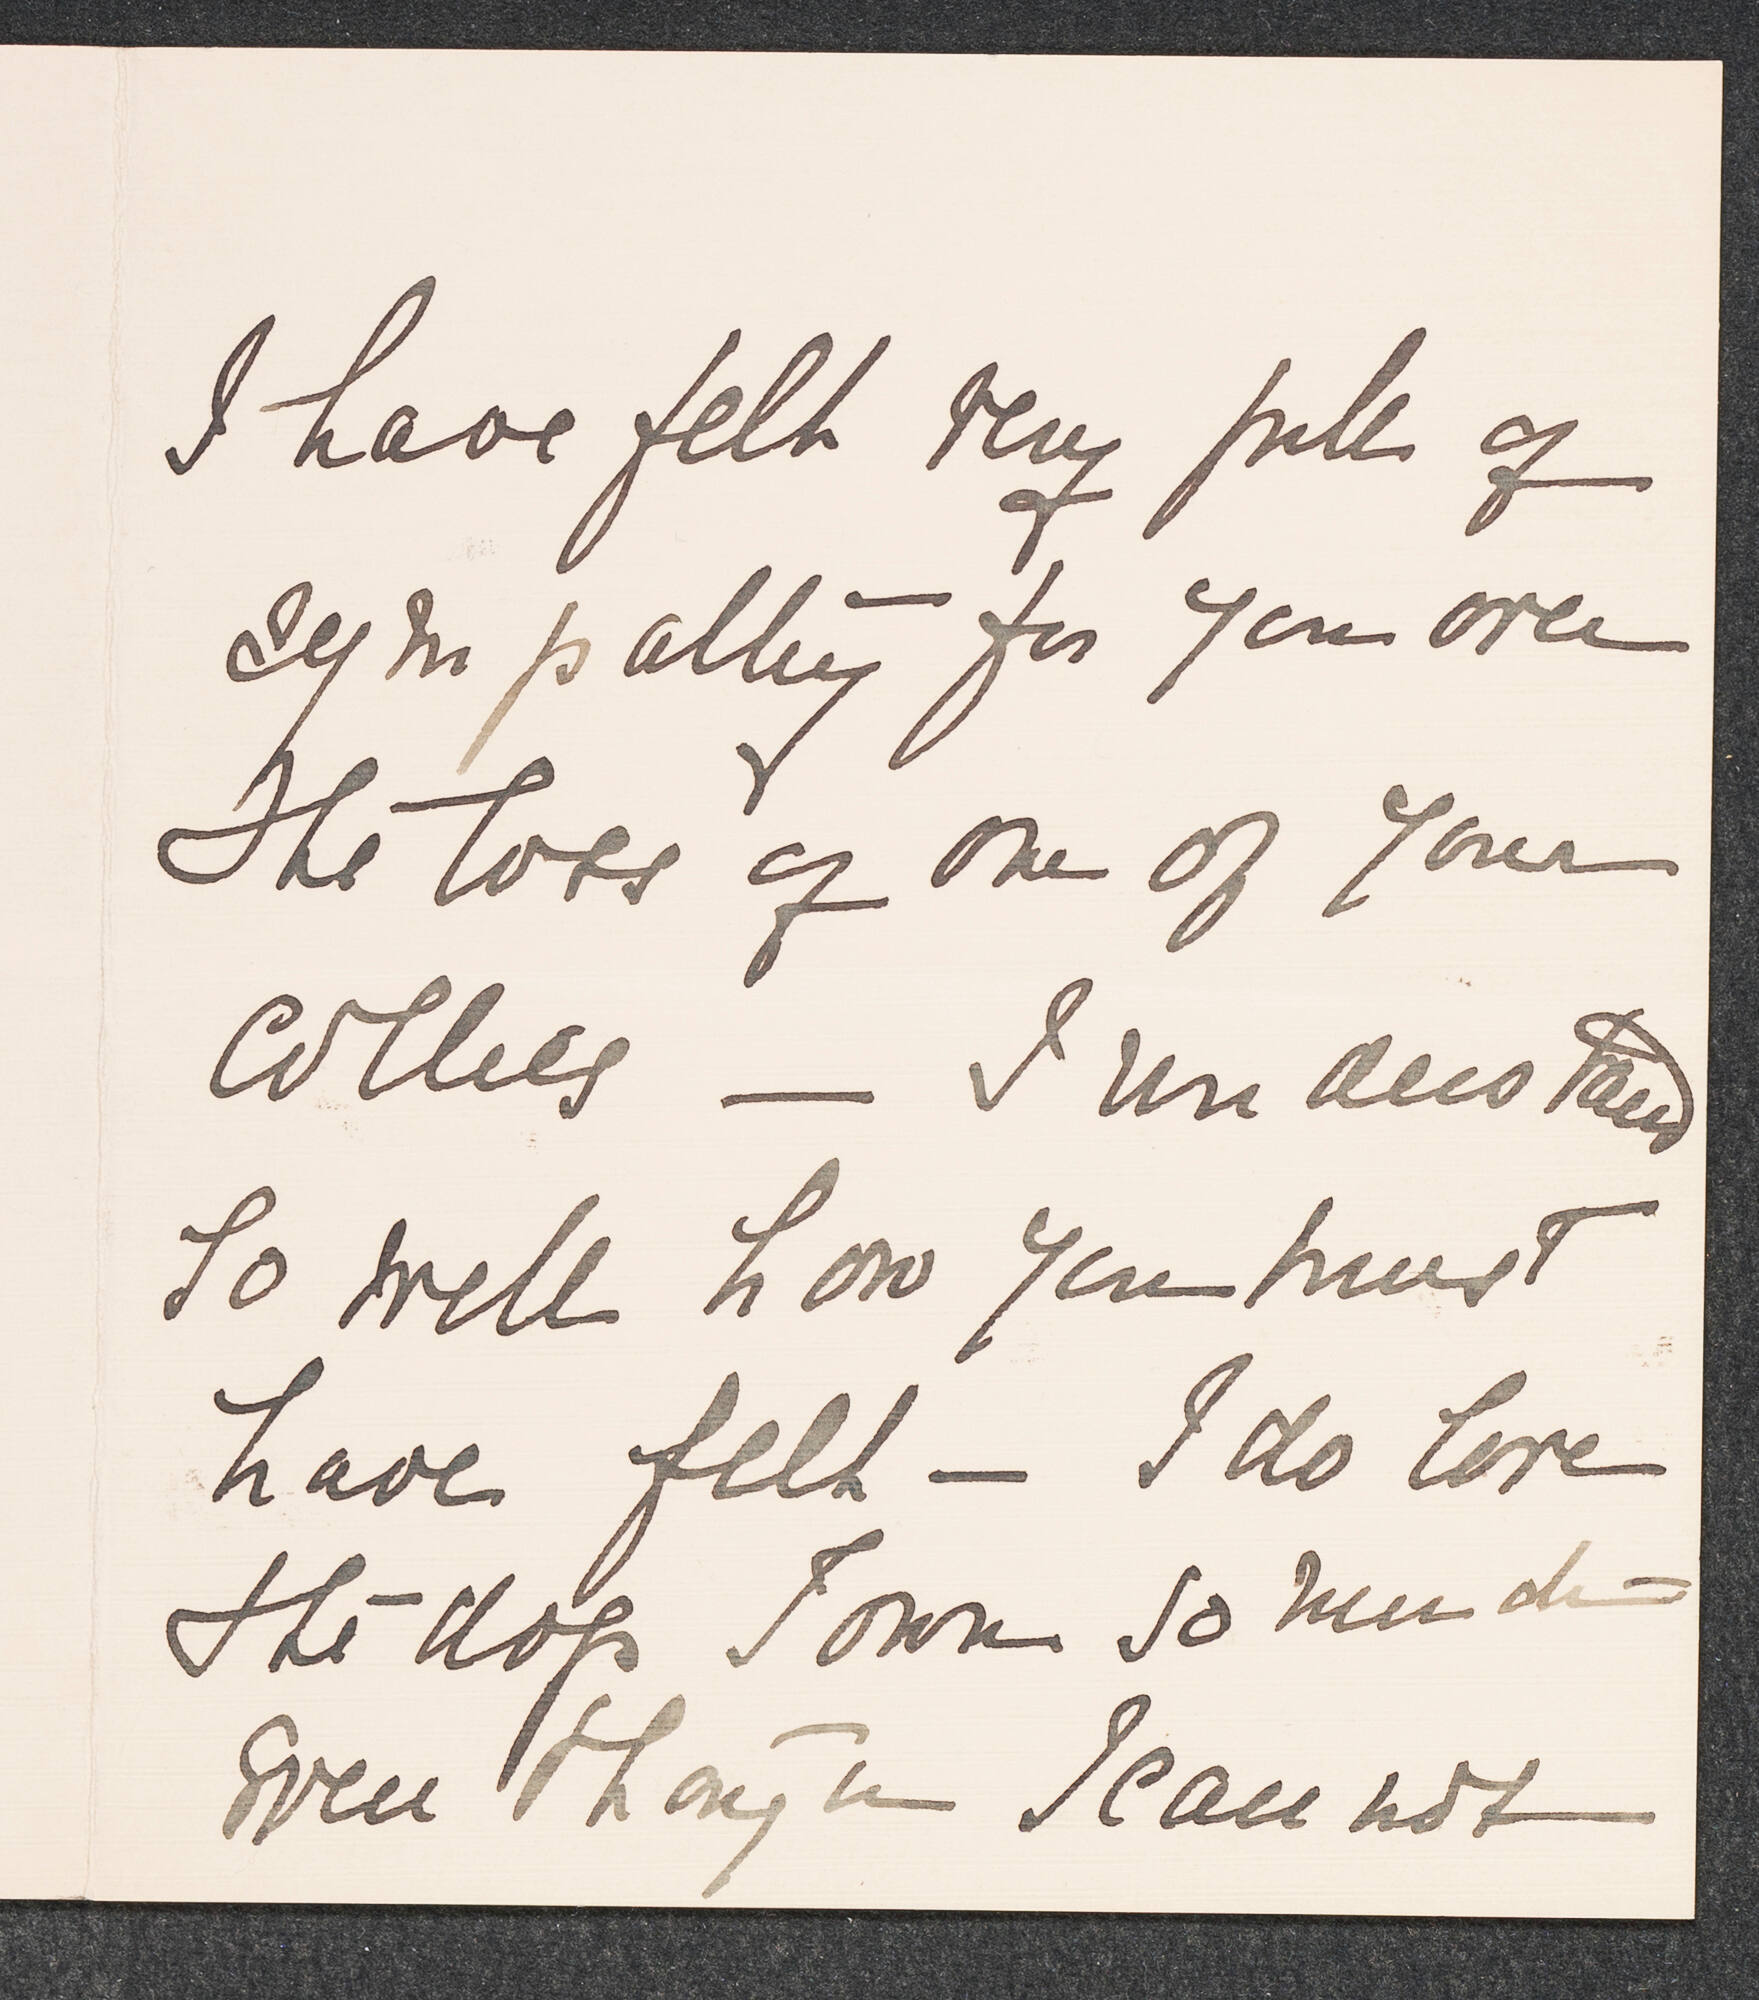 I have felt very full of
sympathy for you over
the loss of one of your
Collies — I understand
So well how you must
have felt — I do love
the dogs I own so much =
Even though I can not